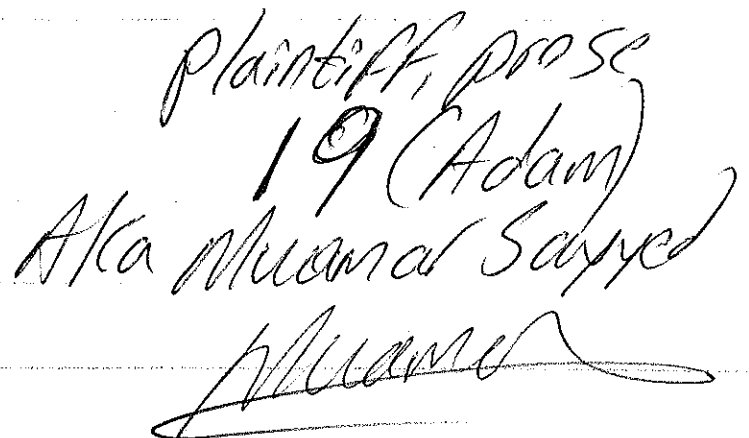 plaintiff, prose
19 (Adam)
AKa Muamar Sayyed
Muamer